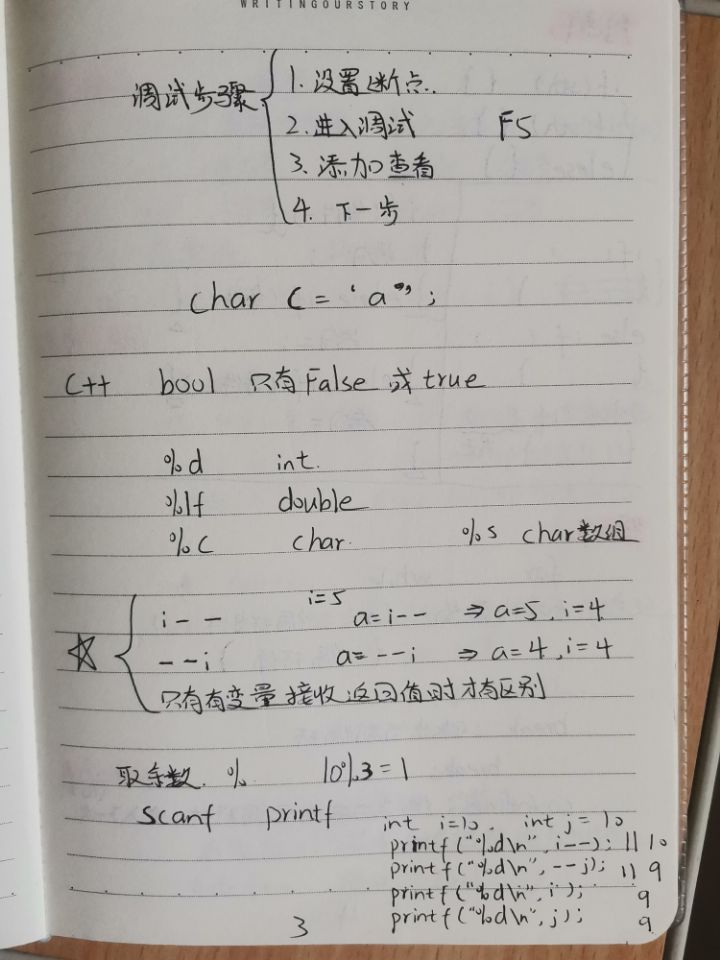 WRITINGOURSTORY
调试步骤 1. 设置断点.
2. 进入调试 F5
3. 添加查看
4. 下一步
char c = 'a”;
C++ bool 只有False 或 true
%d int.
%lf double
%c char. %s char数组
i=5
i-- a=i-- ⇒ a=5, i=4
--i a=--i ⇒ a=4, i=4
只有有变量接收返回值时才有区别
取余数. % 10%3=1
scanf printf
int i=10, int j=10
printf("%d\n", i--); // 10
printf("%d\n", --j); // 9
printf("%d\n", i); 9
printf("%d\n", j); 9
3